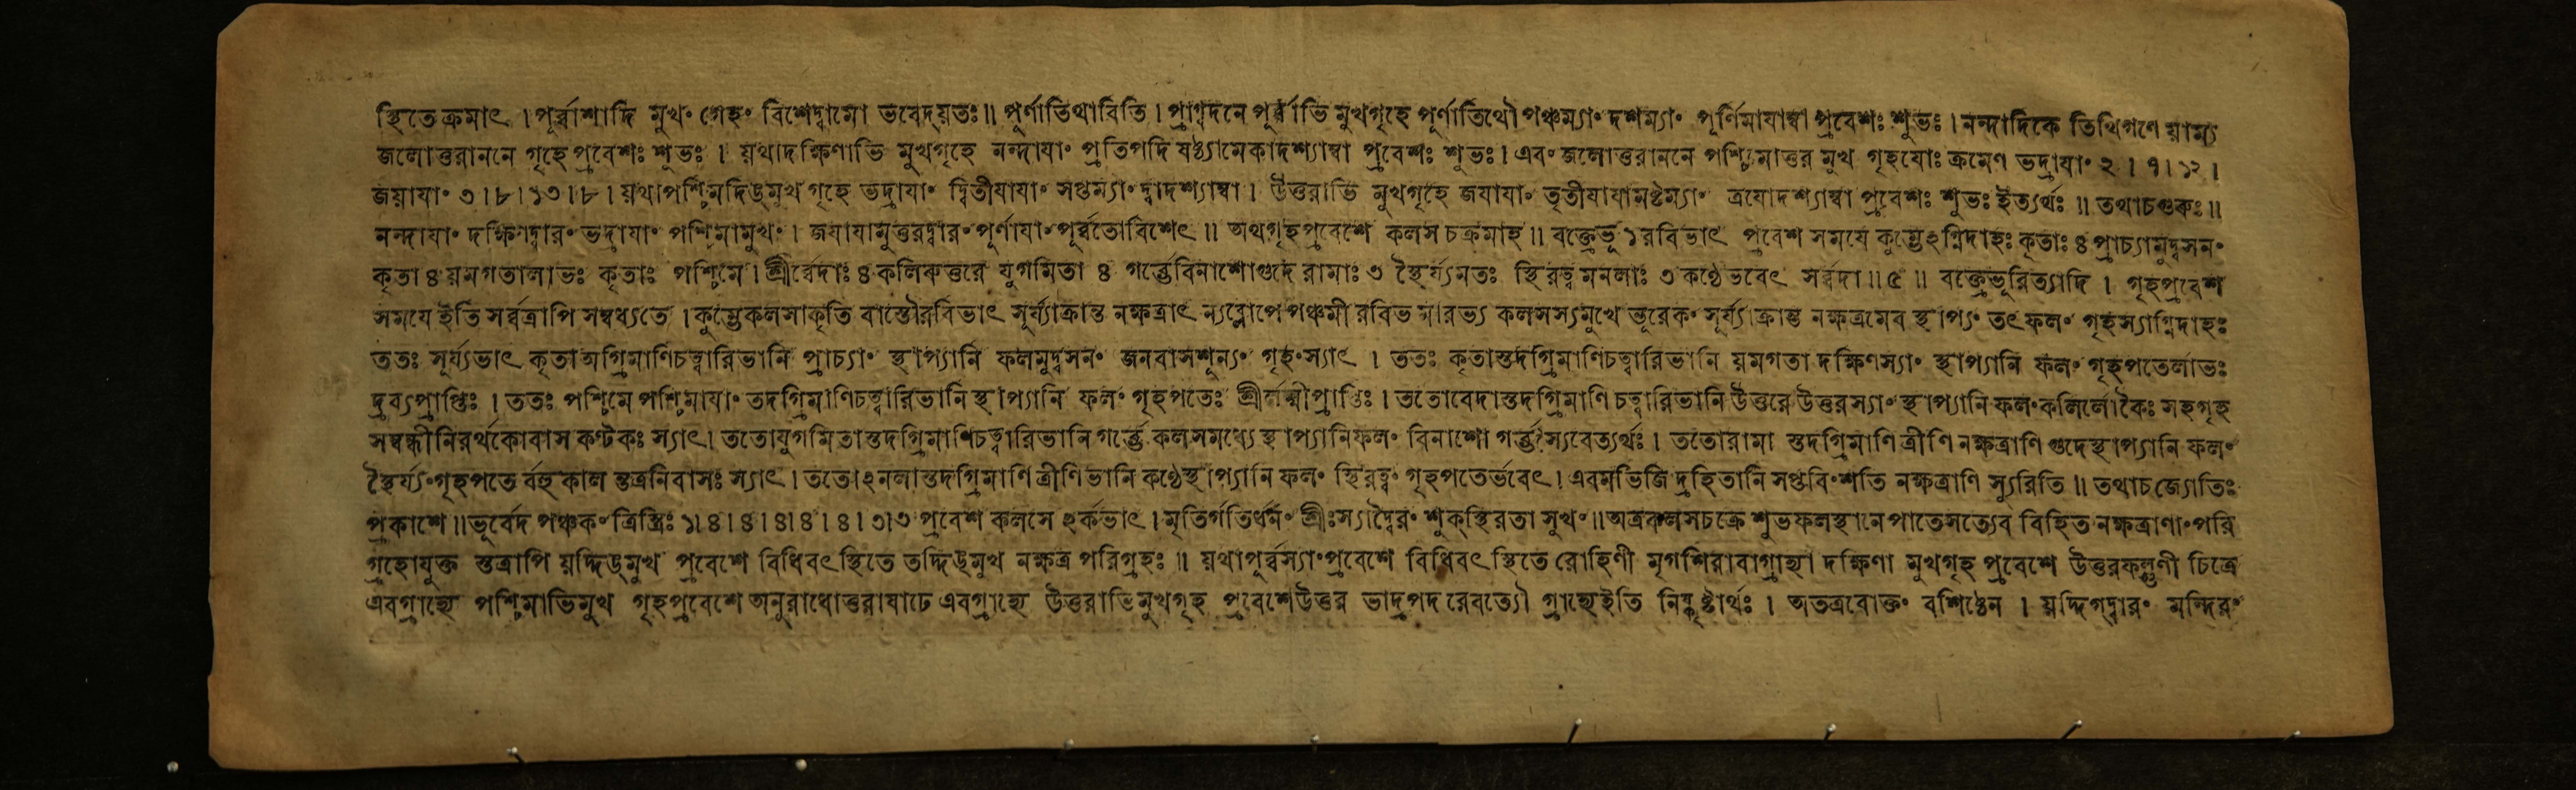 স্থিতে ক্রমাৎ । পূর্ব্বাশাদি মুখং গেহং বিশেদ্বামো ভবেদ্যতঃ ॥ পূর্ণাতিথাবিতি । প্রাগ্বদনে পূর্ব্বাভি মুখগৃহে পূর্ণাতিথৌ পঞ্চম্যাং দশম্যাং পূর্ণিমাযাম্বা প্রবেশঃ শুভঃ । নন্দাদিকে তিথিগণে য়াম্য
জলোত্তরাননে গৃহে প্রবেশঃ শুভঃ । য়থাদক্ষিণাভি মুখগৃহে নন্দাযাং প্রতিপদি ষষ্ঠ্যামেকাদশ্যাম্বা প্রবেশঃ শুভঃ । এবং জলোত্তরাননে পশ্চিমোত্তর মুখ গৃহযোঃ ক্রমেণ ভদ্রাযাং ২ । ৭ । ১২ ।
জয়াযাং ৩ । ৮ । ১৩ । ৮ । য়থাপশ্চিমদিঙ্মুখ গৃহে ভদ্রাযাং দ্বিতীযাযাং সপ্তম্যাং দ্বাদশ্যাম্বা । উত্তরাভি মুখগৃহে জযাযাং তৃতীযাযামষ্টম্যাং ত্রযোদশ্যাম্বা প্রবেশঃ শুভঃ ইত্যর্থঃ ॥ তথাচগুরুঃ ॥
নন্দাযাং দক্ষিণদ্বারং ভদ্রাযাং পশ্চিমামুখং । জযাযামুত্তরদ্বারং পূর্ণাযাং পূর্ব্বতোবিশেৎ ॥ অথগৃহপ্রবেশে কলস চক্রমাহ ॥ বক্ত্রেভূ ১ রবিভাৎ প্রবেশ সমযে কুম্ভেঽগ্নিদাহঃ কৃতাঃ ৪ প্রাচ্যামুদ্বসনং
কৃতা ৪ য়মগতালাভঃ কৃতাঃ পশ্চিমে । শ্রীর্ব্বেদাঃ ৪ কলিরুত্তরে যুগমিতা ৪ গর্ব্ভেবিনাশোগুদে রামাঃ ৩ স্থৈর্য্যমতঃ স্থিরত্ব মনলাঃ ৩ কণ্ঠেভবেৎ সর্ব্বদা ॥ ৫ ॥ বক্ত্রেভূরিত্যাদি । গৃহপ্রবেশ
সমযে ইতি সর্ব্বত্রাপি সম্বধ্যতে । কুম্ভেকলসাকৃতি বাস্তৌরবিভাৎ সূর্য্যাক্রান্ত নক্ষত্রাৎ ল্যব্লোপে পঞ্চমী রবিভ মারভ্য কলসস্যমুখে ভূরেকং সূর্য্যাক্রান্ত নক্ষত্রমেব স্থাপ্যং তৎফলং গৃহস্যাগ্নিদাহঃ
ততঃ সূর্য্যভাৎ কৃতা অগ্রিমাণিচত্বারিভানি প্রাচ্যাং স্থাপ্যানি ফলমুদ্বসনং জনবাসশূন্যং গৃহংস্যাৎ । ততঃ কৃতাস্তদগ্রিমাণিচত্বারিভানি য়মগতা দক্ষিণস্যাং স্থাপ্যানি ফলং গৃহপতের্লাভঃ
দ্রব্যপ্রাপ্তিঃ । ততঃ পশ্চিমে পশ্চিমাযাং তদগ্রিমাণিচত্বারিভানি স্থাপ্যানি ফলং গৃহপতেঃ শ্রীর্লক্ষ্মীপ্রাপ্তিঃ । ততোবেদাস্তদগ্রিমাণি চত্বারিভানি উত্তরে উত্তরস্যাং স্থাপ্যানি ফলং কলির্লোকৈঃ সহগৃহ
সম্বন্ধীনিরর্থকোবাস কণ্টকঃ স্যাৎ । ততোযুগমিতাস্তদগ্রিমাণিচত্বারিভানি গর্ব্ভে কলসমধ্যে স্থাপ্যানিফলং বিনাশো গর্ব্ভস্যবেত্যর্থঃ । ততোরামা স্তদগ্রিমাণি ত্রীণি নক্ষত্রাণি গুদেস্থাপ্যানি ফলং
স্থৈর্য্যং গৃহপতে র্বহুকাল ন্তত্রনিবাসঃ স্যাৎ । ততোঽনলাস্তদগ্রিমাণি ত্রীণিভানি কণ্ঠেস্থাপ্যানি ফলং স্থিরত্বং গৃহপতের্ভবেৎ । এবমভিজি দ্রহিতানি সপ্তবিংশতি নক্ষত্রাণি স্যুরিতি ॥ তথাচ জ্যোতিঃ
প্রকাশে ॥ ভূর্বেদ পঞ্চকং ত্রিস্ত্রিঃ ১ । ৪ । ৪ । ৪ । ৪ । ৪ । ৩ । ৩ প্রবেশ কলসে ঽর্কভাৎ । মৃতির্গতির্ধনং শ্রীঃস্যাদ্বৈরং শুক্স্থিরতা সুখং ॥ অত্রকলসচক্রে শুভফলস্থানে পাতেসত্যেব বিহিত নক্ষত্রাণাং পরি
গ্রহোযুক্ত স্তত্রাপি য়দ্দিঙ্মুখ প্রবেশে বিধিবৎস্থিতে তদ্দিঙ্মুখ নক্ষত্র পরিগ্রহঃ ॥ য়থাপূর্ব্বস্যাং প্রবেশে বিধিবৎ স্থিতে রোহিণী মৃগশিরাবাগ্রাহ্যা দক্ষিণা মুখগৃহ প্রবেশে উত্তরফল্গুণী চিত্রে
এবগ্রাহ্যে পশ্চিমাভিমুখ গৃহপ্রবেশে অনুরাধোত্তরাষাঢে এবগ্রাহ্যে উত্তরাভিমুখগৃহ প্রবেশেউত্তর ভাদ্রপদ রেবত্যৌ গ্রাহ্যেইতি নিষ্কৃষ্টার্থঃ । অতএবোক্তং বশিষ্ঠেন । য়দ্দিগ্দ্বারং মন্দিরং